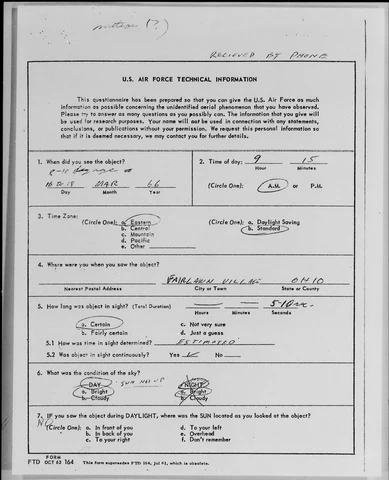 (?)
RECIEVED BY PHONE
U.S. AIR FORCE TECHNICAL INFORMATION
This questionnaire has been prepared so that you can give the U.S. Air Force as much
information as possible concerning the unidentified aerial phenomenon that you have observed.
Please try to answer as many questions as you possibly can. The information that you give will
be used for research purposes. Your name will not be used in connection with any statements,
conclusions, or publications without your permission. We request this personal information so
that if it is deemed necessary, we may contact you for further details.
1. When did you see the object?
MAR 66
Day Month Year
2. Time of day: 9 15
Hour Minutes
(Circle One): A.M. or P.M.
3. Time Zone:
(Circle One): a. Eastern
b. Central
c. Mountain
d. Pacific
e. Other
(Circle One): a. Daylight Saving
b. Standard
4. Where were you when you saw the object?
FAIRLAWN VILLAGE OHIO
Nearest Postal Address City or Town State or County
5. How long was object in sight? (Total Duration)
Hours Minutes Seconds
a. Certain c. Not very sure
b. Fairly certain d. Just a guess
5.1 How was time in sight determined? ESTIMATED
5.2 Was object in sight continuously? Yes ✓ No
6. What was the condition of the sky?
DAY SUN NOT UP NIGHT
a. Bright a. Bright
b. Cloudy b. Cloudy
7. IF you saw the object during DAYLIGHT, where was the SUN located as you looked at the object?
NO
(Circle One): a. In front of you d. To your left
b. In back of you e. Overhead
c. To your right f. Don't remember
FORM
FTD OCT 62 164 This form supersedes FTD 164, Jul 61, which is obsolete.